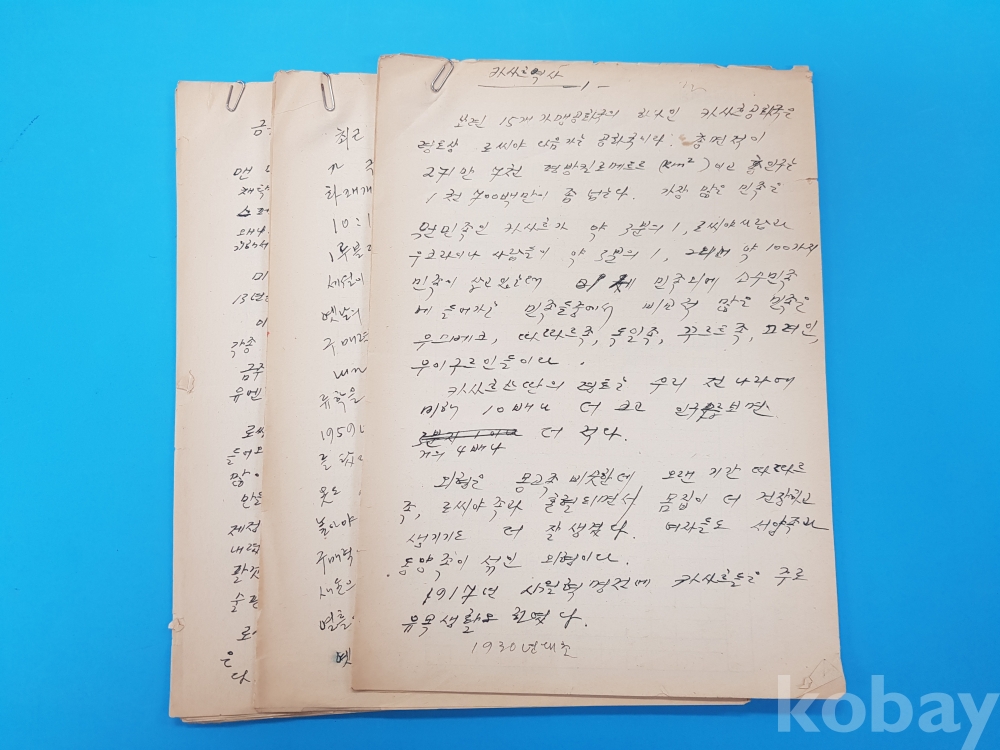 카사흐역사
-1-
쏘련 15개 가맹공화국의 하나인 카사흐공화국은
령토상 로씨야 다음가는 공화국이다. 총면적이
271만 7천 평방킬로메트르(km²)이고 총인구는
1천 700백만이 좀 넘는다. 가장 많은 민족은
원민족인 카사흐가 약 3분의 1, 로씨야사람과
우크라이나 사람들이 약 3분의 1, 그외에 약 100가지
민족이 살고있는데 이 민족외에 소수민족
에 들어가는 민족들중에서 비교적 많은 민족은
우즈베크, 따따르족, 독일족, 꾸르트족, 고려인,
우이구르인들이다.
카사흐스딴의 령토는 우리 전나라에
비해 10배나 더 크고 인구로보면
거의 4배나 더 적다.
외형은 몽고족 비슷한데 오랜 기간 따따르
족, 로씨야족과 혼혈되면서 몸집이 더 건장하고
생기기도 더 잘생겼다. 녀자들도 서양족과
동양족이 섞인 외형이다.
1917년 시월혁명전에 카사흐들은 주로
유목생활을 하였다.
1930년대초
최근
화재개
10:1
1루불
세월이
옛날의
구매
류학을
1959
옷도
놀아야
구매력
새돈의
옛
금
맨
미
13년
이
각종
금주
유엔
로씨
들어
많이
만들
제정
내렸
팔것
술
로
은
다
kobay